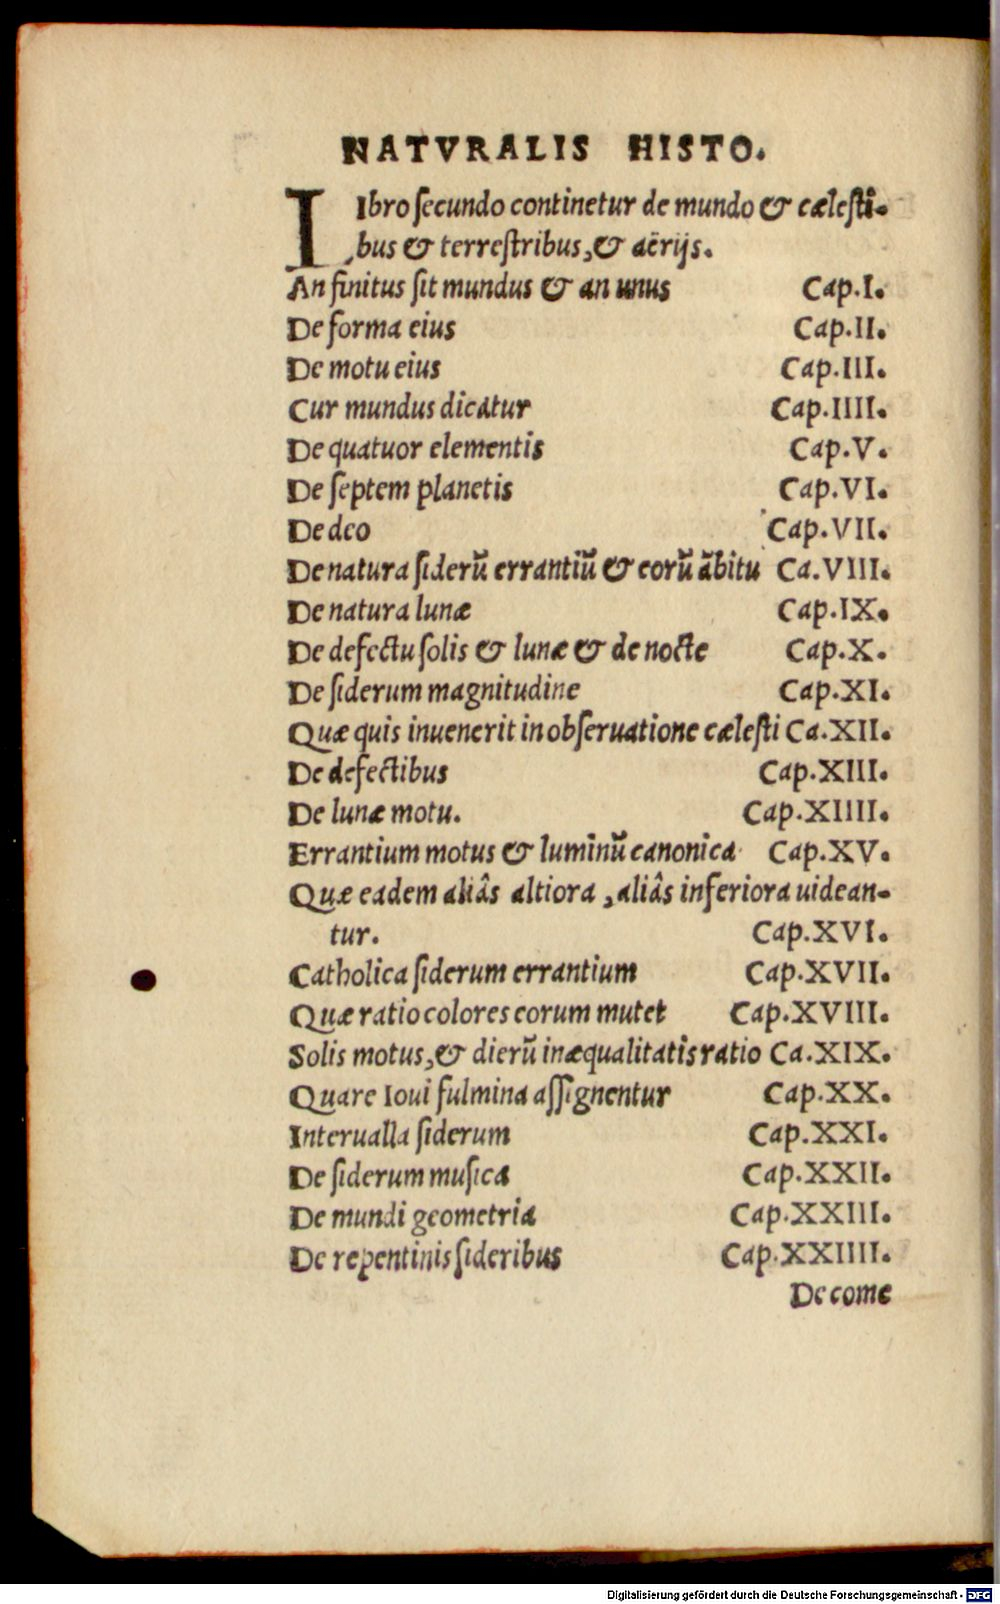 NATVRALIS HISTO.
LIbro secundo continetur de mundo & cælesti-
bus & terrestribus, & aërijs.
An finitus sit mundus & an unus Cap.I.
De forma eius Cap.II.
De motu eius Cap.III.
Cur mundus dicatur Cap.IIII.
De quatuor elementis Cap.V.
De septem planetis Cap.VI.
De deo Cap.VII.
De natura siderũ errantiũ & eorũ ãbitu Ca.VIII.
De natura lunæ Cap.IX.
De defectu solis & lunæ & de nocte Cap.X.
De siderum magnitudine Cap.XI.
Quæ quis inuenerit in obseruatione cælesti Ca.XII.
De defectibus Cap.XIII.
De lunæ motu. Cap.XIIII.
Errantium motus & luminũ canonica Cap.XV.
Quæ eadem aliâs altiora, aliâs inferiora uidean-
tur. Cap.XVI.
Catholica siderum errantium Cap.XVII.
Quæ ratio colores eorum mutet Cap.XVIII.
Solis motus, & dierũ inæqualitatis ratio Ca.XIX.
Quare Ioui fulmina assignentur Cap.XX.
Interualla siderum Cap.XXI.
De siderum musica Cap.XXII.
De mundi geometria Cap.XXIII.
De repentinis sideribus Cap.XXIIII.
De come
Digitalisierung gefördert durch die Deutsche Forschungsgemeinschaft - DFG